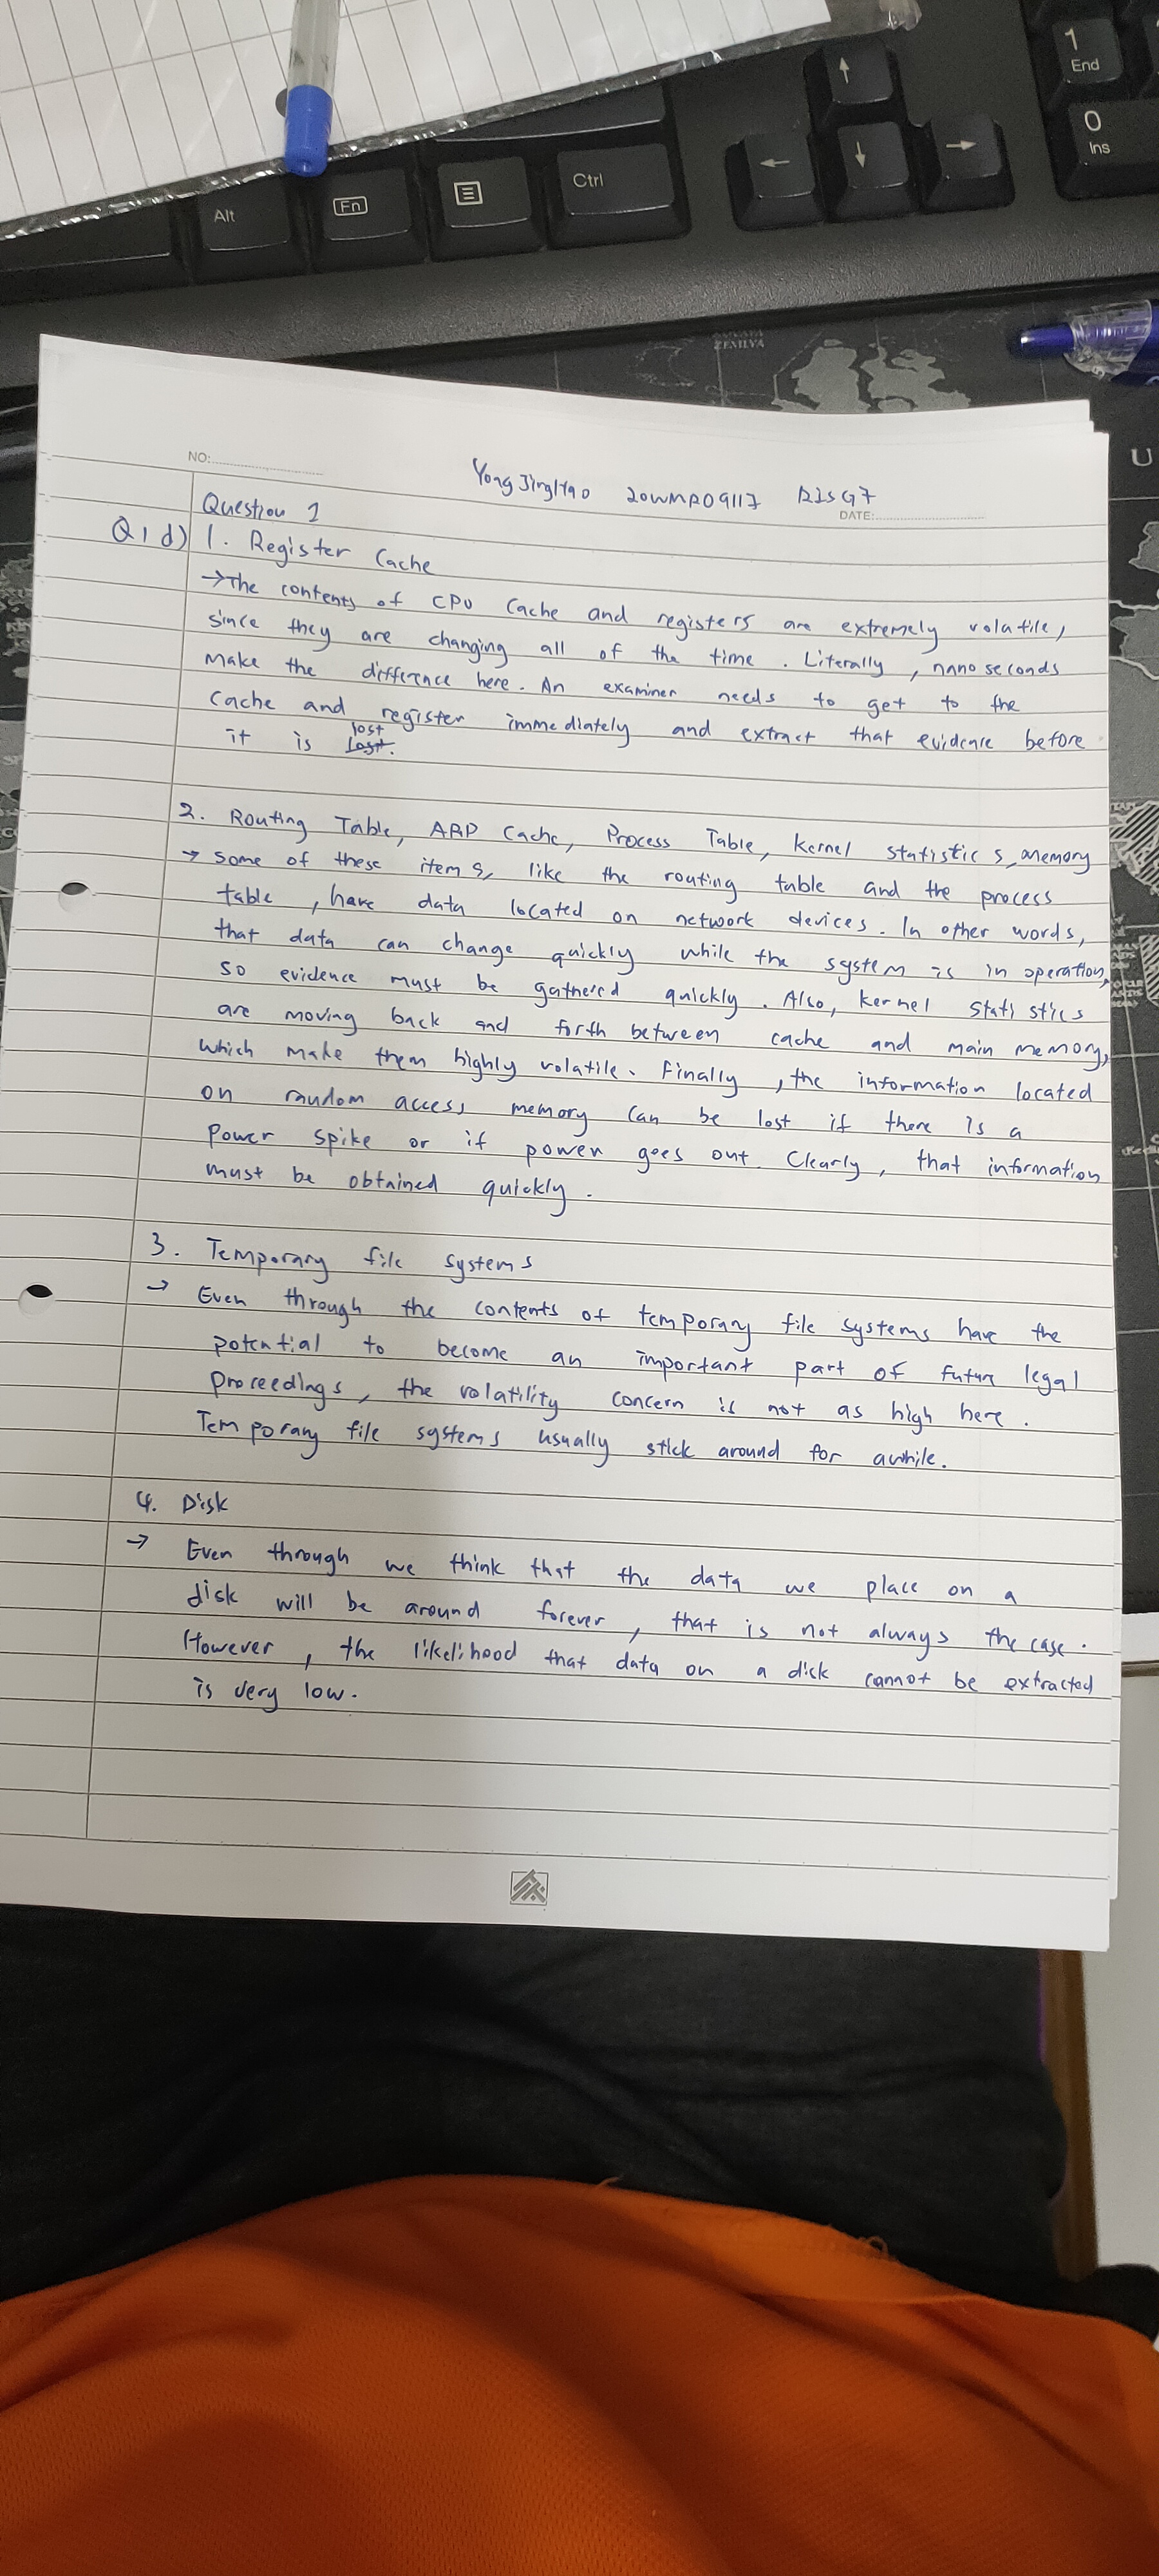 1
End
0
Ins
Alt
Fn
Ctrl
ZEMLYA
U
NO:
Yong JingHao 20WMR09117 RISG7
DATE:
Question 1
Q1 d) 1. Register Cache
→ The contents of CPU Cache and registers are extremely volatile,
since they are changing all of the time. Literally, nanoseconds
make the difference here. An examiner needs to get to the
cache and register immediately and extract that evidence before
it is lost.
2. Routing Table, ARP Cache, Process Table, Kernel statistics, memory
→ some of these items, like the routing table and the process
table, have data located on network devices. In other words,
that data can change quickly while the system is in operation,
so evidence must be gathered quickly. Also, kernel statistics
are moving back and forth between cache and main memory,
which make them highly volatile. Finally, the information located
on random access memory can be lost if there is a
power spike or if power goes out. Clearly, that information
must be obtained quickly.
3. Temporary file systems
→ Even through the contents of temporary file systems have the
potential to become an important part of future legal
proceedings, the volatility concern is not as high here.
Temporary file systems usually stick around for awhile.
4. Disk
→ Even through we think that the data we place on a
disk will be around forever, that is not always the case.
However, the likelihood that data on a disk cannot be extracted
is very low.